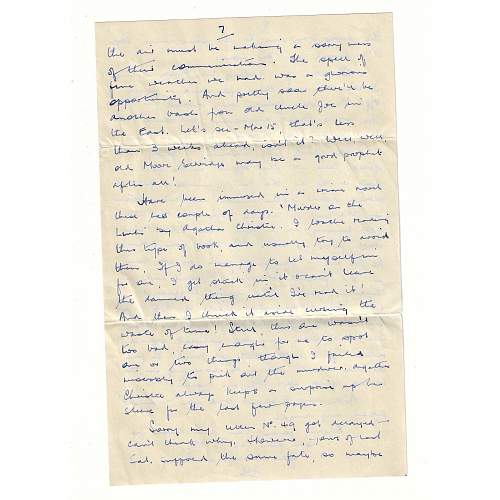 7
the air must be making a sorry mess
of their communications. The spell of
fine weather we had was a glorious
opportunity. And pretty soon there'll be
another bash from old Uncle Joe in
the East. Let's see - Mar 15, that's less
than 3 weeks ahead, isn't it? Well, well
old Moore may be a good prophet
after all!
Have been immersed in a crime novel
these last couple of days. 'Murder on the
Links' by Agatha Christie. I loathe reading
this type of book, and usually try to avoid
them. If I do manage to let myself in
for one, I get stuck in it & can't leave
the damned thing until I've read it!
And then I chuck it aside cursing the
waste of time! Still, this one wasn't
too bad, easy enough for me to spot
one or two things, though I failed
miserably to pick out the murderer. Agatha
Christie always keeps a surprise up her
sleeve for the last few pages.
Sorry my letter No. 49 got delayed -
can't think why. However, yours of last
Sat. suffered the same fate, so maybe